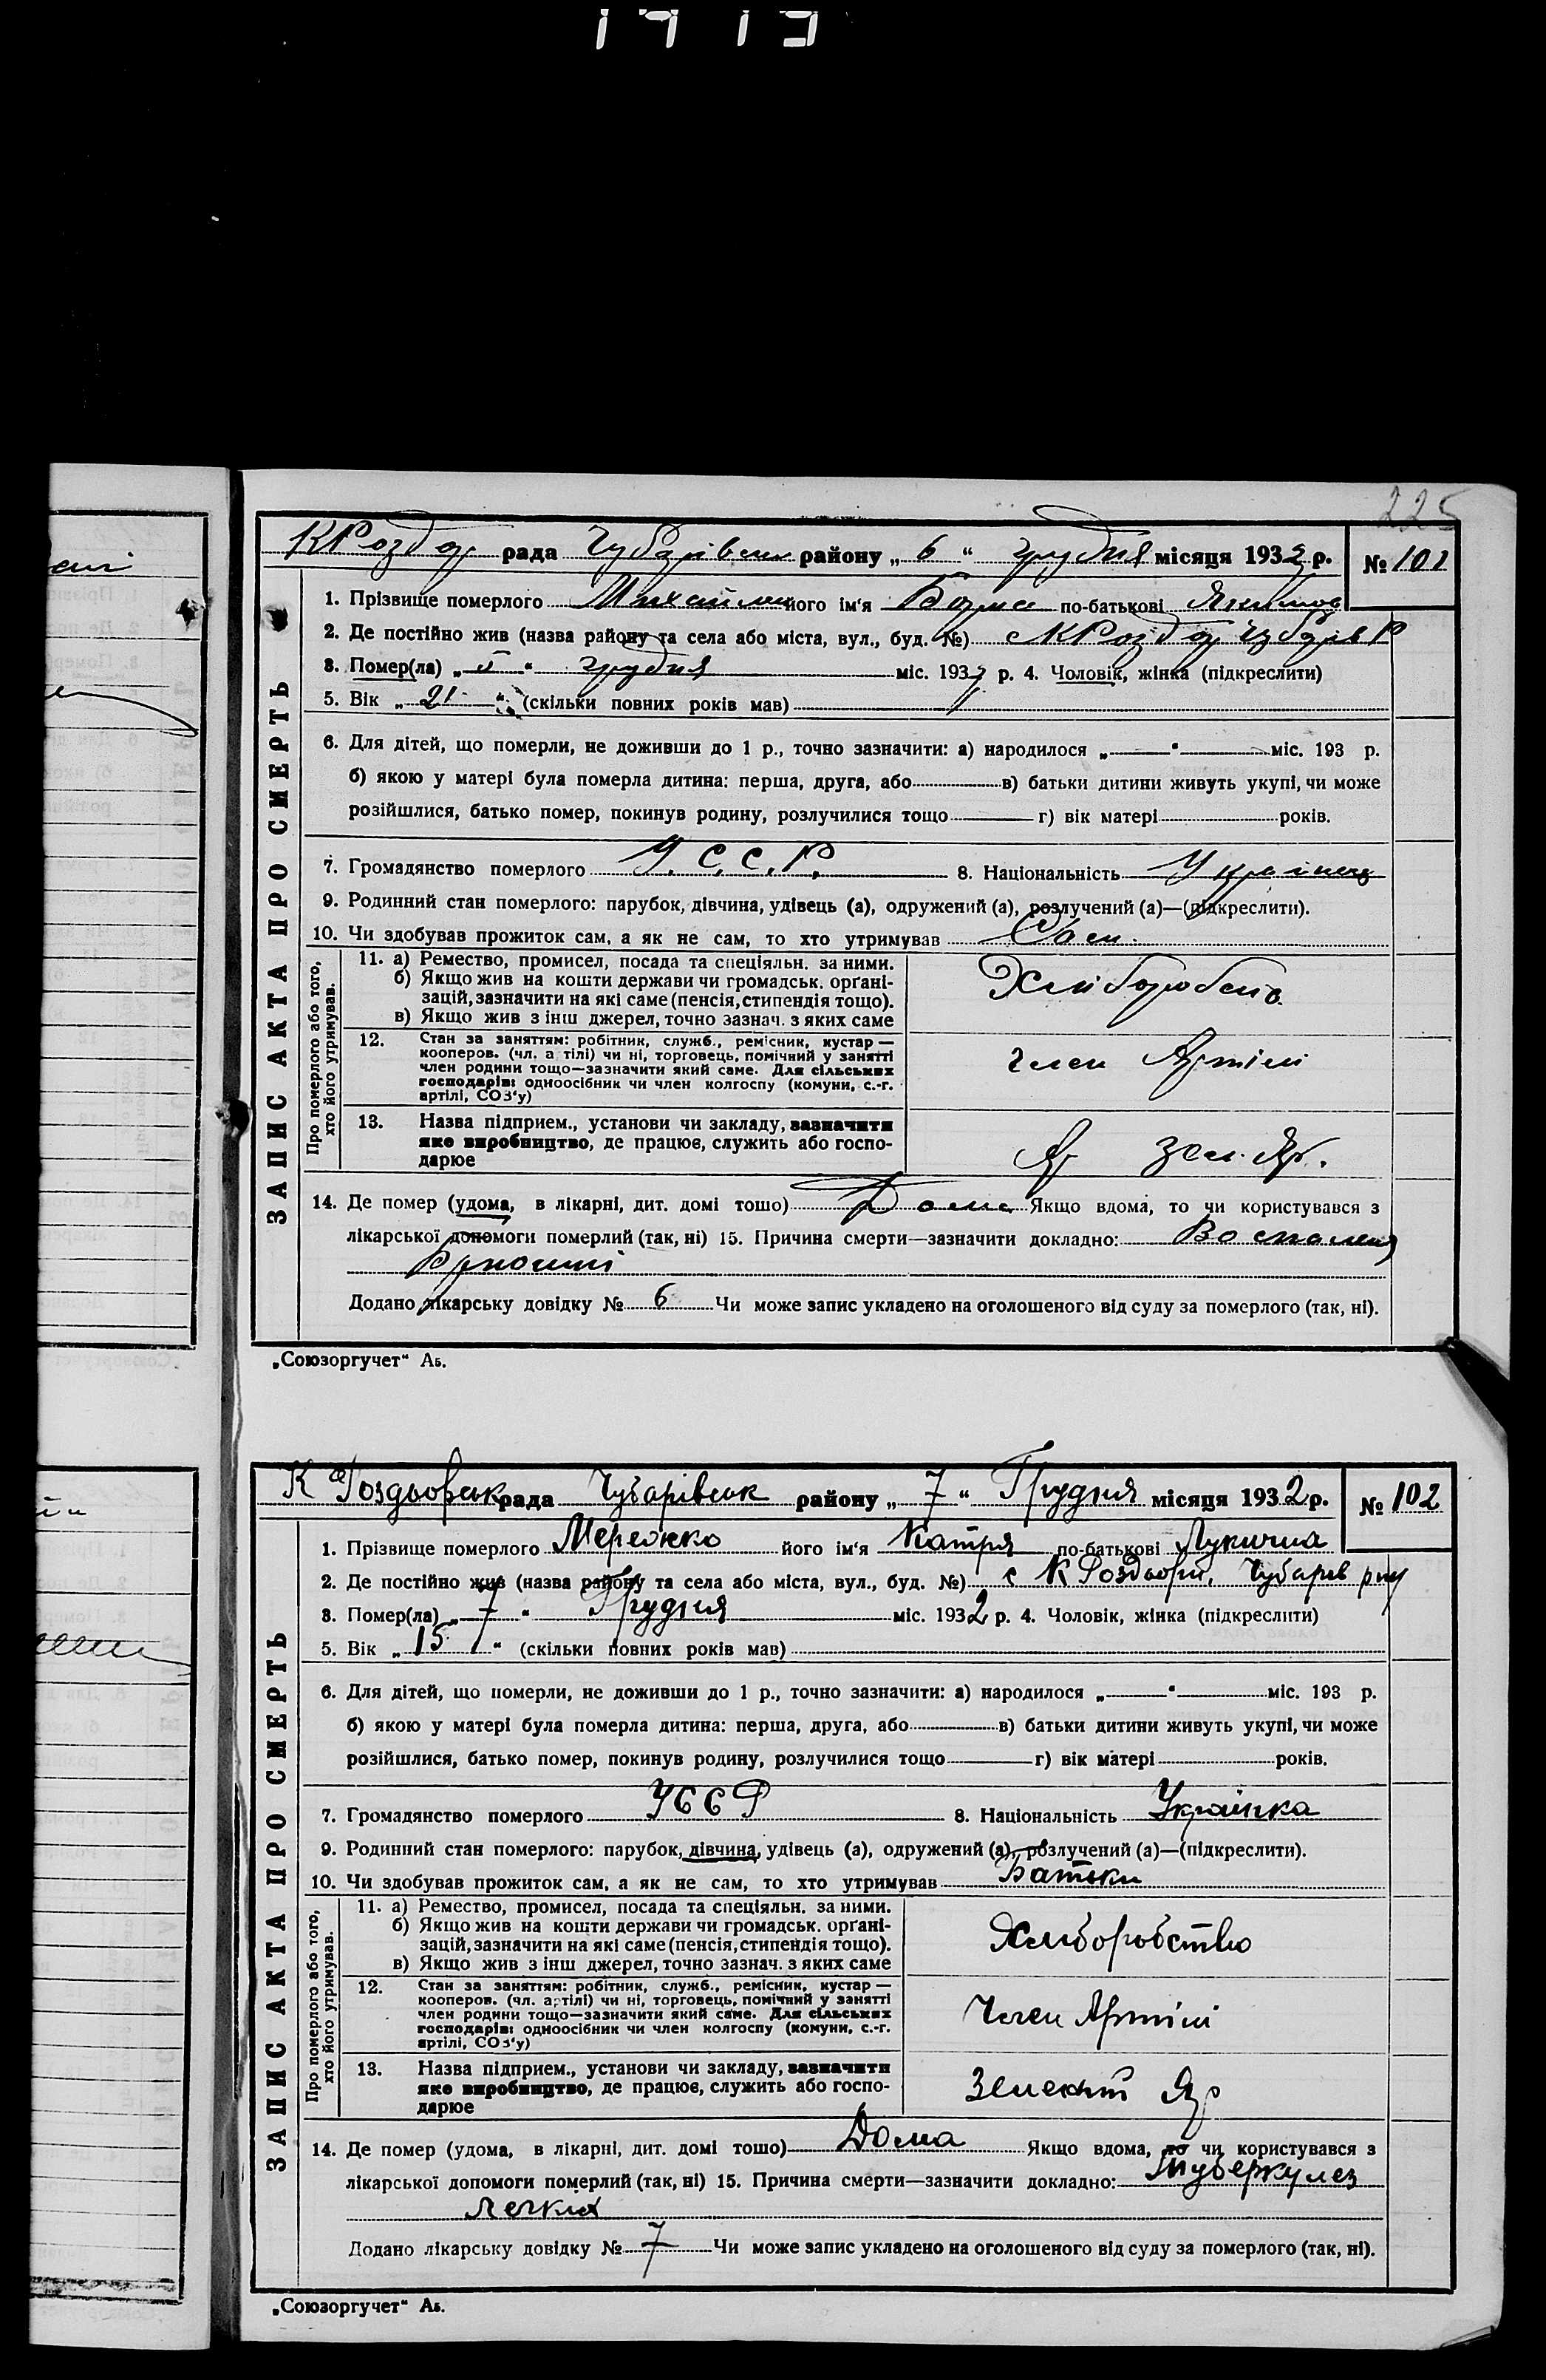 1913
225
К Роздор рада Чубарівськ району „ 6 “ грудня місяця 1932 р. № 101
ЗАПИС АКТА ПРО СМЕРТЬ
1. Прізвище померлого його ім‘я по-батькові
2. Де постійно жив (назва району та села або міста, вул., буд. №) с К Роздор Чубарів Р
3. Помер(ла) „ “ грудня міс. 193 р. 4. Чоловік, жінка (підкреслити)
5. Вік „ 21 “ (скільки повних років мав)
6. Для дітей, що померли, не доживши до 1 р., точно зазначити: а) народилося „ “ міс. 193 р.
б) якою у матері була померла дитина: перша, друга, або в) батьки дитини живуть укупі, чи може
розійшлися, батько помер, покинув родину, розлучилися тощо г) вік матері років.
7. Громадянство померлого У.С.С.Р. 8. Національність Українець
9. Родинний стан померлого: парубок, дівчина, удівець (а), одружений (а), розлучений (а)—(підкреслити).
10. Чи здобував прожиток сам, а як не сам, то хто утримував Сам
Про померлого або того, хто його утримував.
11. а) Ремество, промисел, посада та спеціяльн. за ними.
б) Якщо жив на кошти держави чи громадськ. орґані-
зацій, зазначити на які саме (пенсія, стипендія тощо).
в) Якщо жив з інш джерел, точно зазнач. з яких саме
Хлібороб
12. Стан за заняттям: робітник, служб., ремісник, кустар —
кооперов. (чл. артілі) чи ні, торговець, помічний у занятті
член родини тощо—зазначити який саме. Для сільських
господарів: одноосібник чи член колгоспу (комуни, с.-г.
артілі, СОЗ‘у)
член Артілі
13. Назва підприєм., установи чи закладу, зазначити
яке виробництво, де працює, служить або госпо-
дарює
14. Де помер (удома, в лікарні, дит. домі тошо) Дома Якщо вдома, то чи користувався з
лікарської допомоги померлий (так, ні) 15. Причина смерти—зазначити докладно:
Додано лікарську довідку № 6 Чи може запис укладено на оголошеного від суду за померлого (так, ні).
„Союзоргучет“ Аь.
К Роздорськ рада Чубарівськ району „ 7 “ Грудня місяця 1932 р. № 102
ЗАПИС АКТА ПРО СМЕРТЬ
1. Прізвище померлого Мережко його ім‘я Катря по-батькові Лукична
2. Де постійно жив (назва району та села або міста, вул., буд. №) с К Роздори, Чубарів р-ну
3. Помер(ла) „ 7 “ Грудня міс. 1932 р. 4. Чоловік, жінка (підкреслити)
5. Вік „ 15 “ (скільки повних років мав)
6. Для дітей, що померли, не доживши до 1 р., точно зазначити: а) народилося „ “ міс. 193 р.
б) якою у матері була померла дитина: перша, друга, або в) батьки дитини живуть укупі, чи може
розійшлися, батько помер, покинув родину, розлучилися тощо г) вік матері років.
7. Громадянство померлого УССР 8. Національність Українка
9. Родинний стан померлого: парубок, дівчина, удівець (а), одружений (а), розлучений (а)—(підкреслити).
10. Чи здобував прожиток сам, а як не сам, то хто утримував Батьки
Про померлого або того, хто його утримував.
11. а) Ремество, промисел, посада та спеціяльн. за ними.
б) Якщо жив на кошти держави чи громадськ. орґані-
зацій, зазначити на які саме (пенсія, стипендія тощо).
в) Якщо жив з інш джерел, точно зазнач. з яких саме
Хліборобство
12. Стан за заняттям: робітник, служб., ремісник, кустар —
кооперов. (чл. артілі) чи ні, торговець, помічний у занятті
член родини тощо—зазначити який саме. Для сільських
господарів: одноосібник чи член колгоспу (комуни, с.-г.
артілі, СОЗ‘у)
Член Артілі
13. Назва підприєм., установи чи закладу, зазначити
яке виробництво, де працює, служить або госпо-
дарює
14. Де помер (удома, в лікарні, дит. домі тошо) Дома Якщо вдома, то чи користувався з
лікарської допомоги померлий (так, ні) 15. Причина смерти—зазначити докладно: Туберкулез
легких
Додано лікарську довідку № 7 Чи може запис укладено на оголошеного від суду за померлого (так, ні).
„Союзоргучет“ Аь.